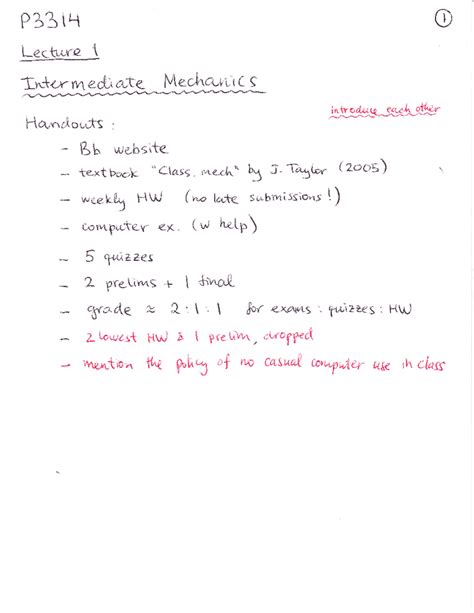 P3314
①
Lecture 1
Intermediate Mechanics
introduce each other
Handouts :
- Bb website
- textbook "Class. mech" by J. Taylor (2005)
- weekly HW (no late submissions!)
- computer ex. (w help)
- 5 quizzes
- 2 prelims + 1 final
- grade ≈ 2:1:1 for exams : quizzes : HW
- 2 lowest HW & 1 prelim, dropped
- mention the policy of no casual computer use in class